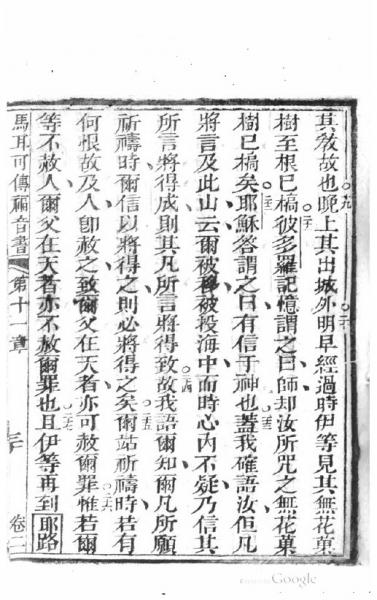 其教故也晚上其出城外明早經過時伊等見其無花菓
樹至根已槁彼多羅記憶謂之曰師却汝所咒之無花菓
樹已槁矣耶穌答謂之曰有信于神也蓋我確語汝但凡
將言及此山云爾被移被投海中而時心內不疑乃信其
所言將得成則其凡所言將得致故我語爾知爾凡所願
祈禱時爾信以將得之則必將得之矣爾站祈禱時若有
何恨故及人卽赦之致爾父在天者亦可赦爾罪惟若爾
等不赦人爾父在天者亦不赦爾罪也且伊等再到耶路
馬耳可傳福音書 第十一章 卷二
Google